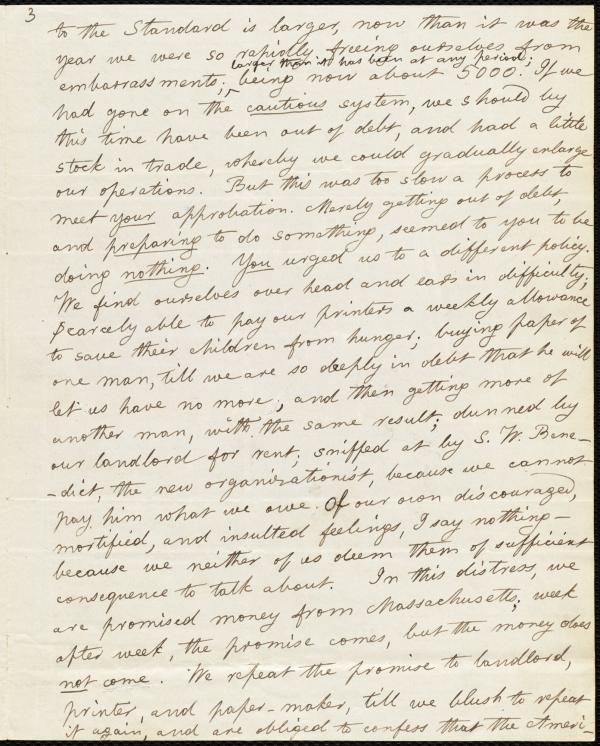 3
to the Standard is larger, now than it was the
year we were so rapidly freeing ourselves from
larger than it has been at any period;
embarrassments; ^ being now about 5000. If we
had gone on the cautious system, we should by
this time have been out of debt, and had a little
stock in trade, whereby we could gradually enlarge
our operations. But this was too slow a process to
meet your approbation. Merely getting out of debt,
and preparing to do something, seemed to you to be
doing nothing. You urged us to a different policy.
We find ourselves over head and ears in difficulty;
scarcely able to pay our printers a weekly allowance
to save their children from hunger; buying paper of
one man, till we are so deeply in debt that he will
let us have no more; and then getting more of
another man, with the same result; dunned by
our landlord for rent; sniffed at by S. W. Bene-
-dict, the new organizationist, because we cannot
pay him what we owe. Of our own discouraged,
mortified, and insulted feelings, I say nothing—
because we neither of us deem them of sufficient
consequence to talk about. In this distress, we
are promised money from Massachusetts; week
after week, the promise comes, but the money does
not come. We repeat the promise to landlord,
printer, and paper-maker, till we blush to repeat
it again, and are obliged to confess that the Ameri-